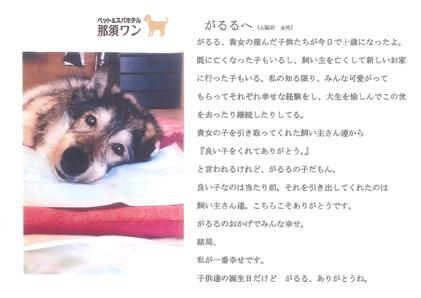 ペット&スパホテル
那須ワン
がるるへ (大阪府 女性)
がるる、貴女の産んだ子供たちが今日で十歳になったよ。
既に亡くなった子もいるし、飼い主を亡くして新しいお家
に行った子もいる。私の知る限り、みんな可愛がって
もらってそれぞれ幸せな経験をし、犬生を愉しんでこの世
を去ったり継続したりしてる。
貴女の子を引き取ってくれた飼い主さん達から
『良い子をくれてありがとう。』
と言われるけれど、がるるの子だもん。
良い子なのは当たり前。それを引き出してくれたのは
飼い主さん達。こちらこそありがとうです。
がるるのおかげでみんな幸せ。
結局、
私が一番幸せです。
子供達の誕生日だけど がるる、ありがとうね。